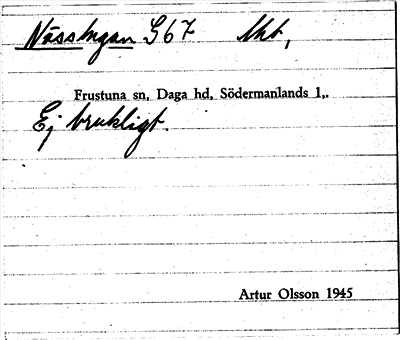 Nässtugan S67 Skt,
Frustuna sn, Daga hd, Södermanlands l,.
Ej brukligt.
Artur Olsson 1945